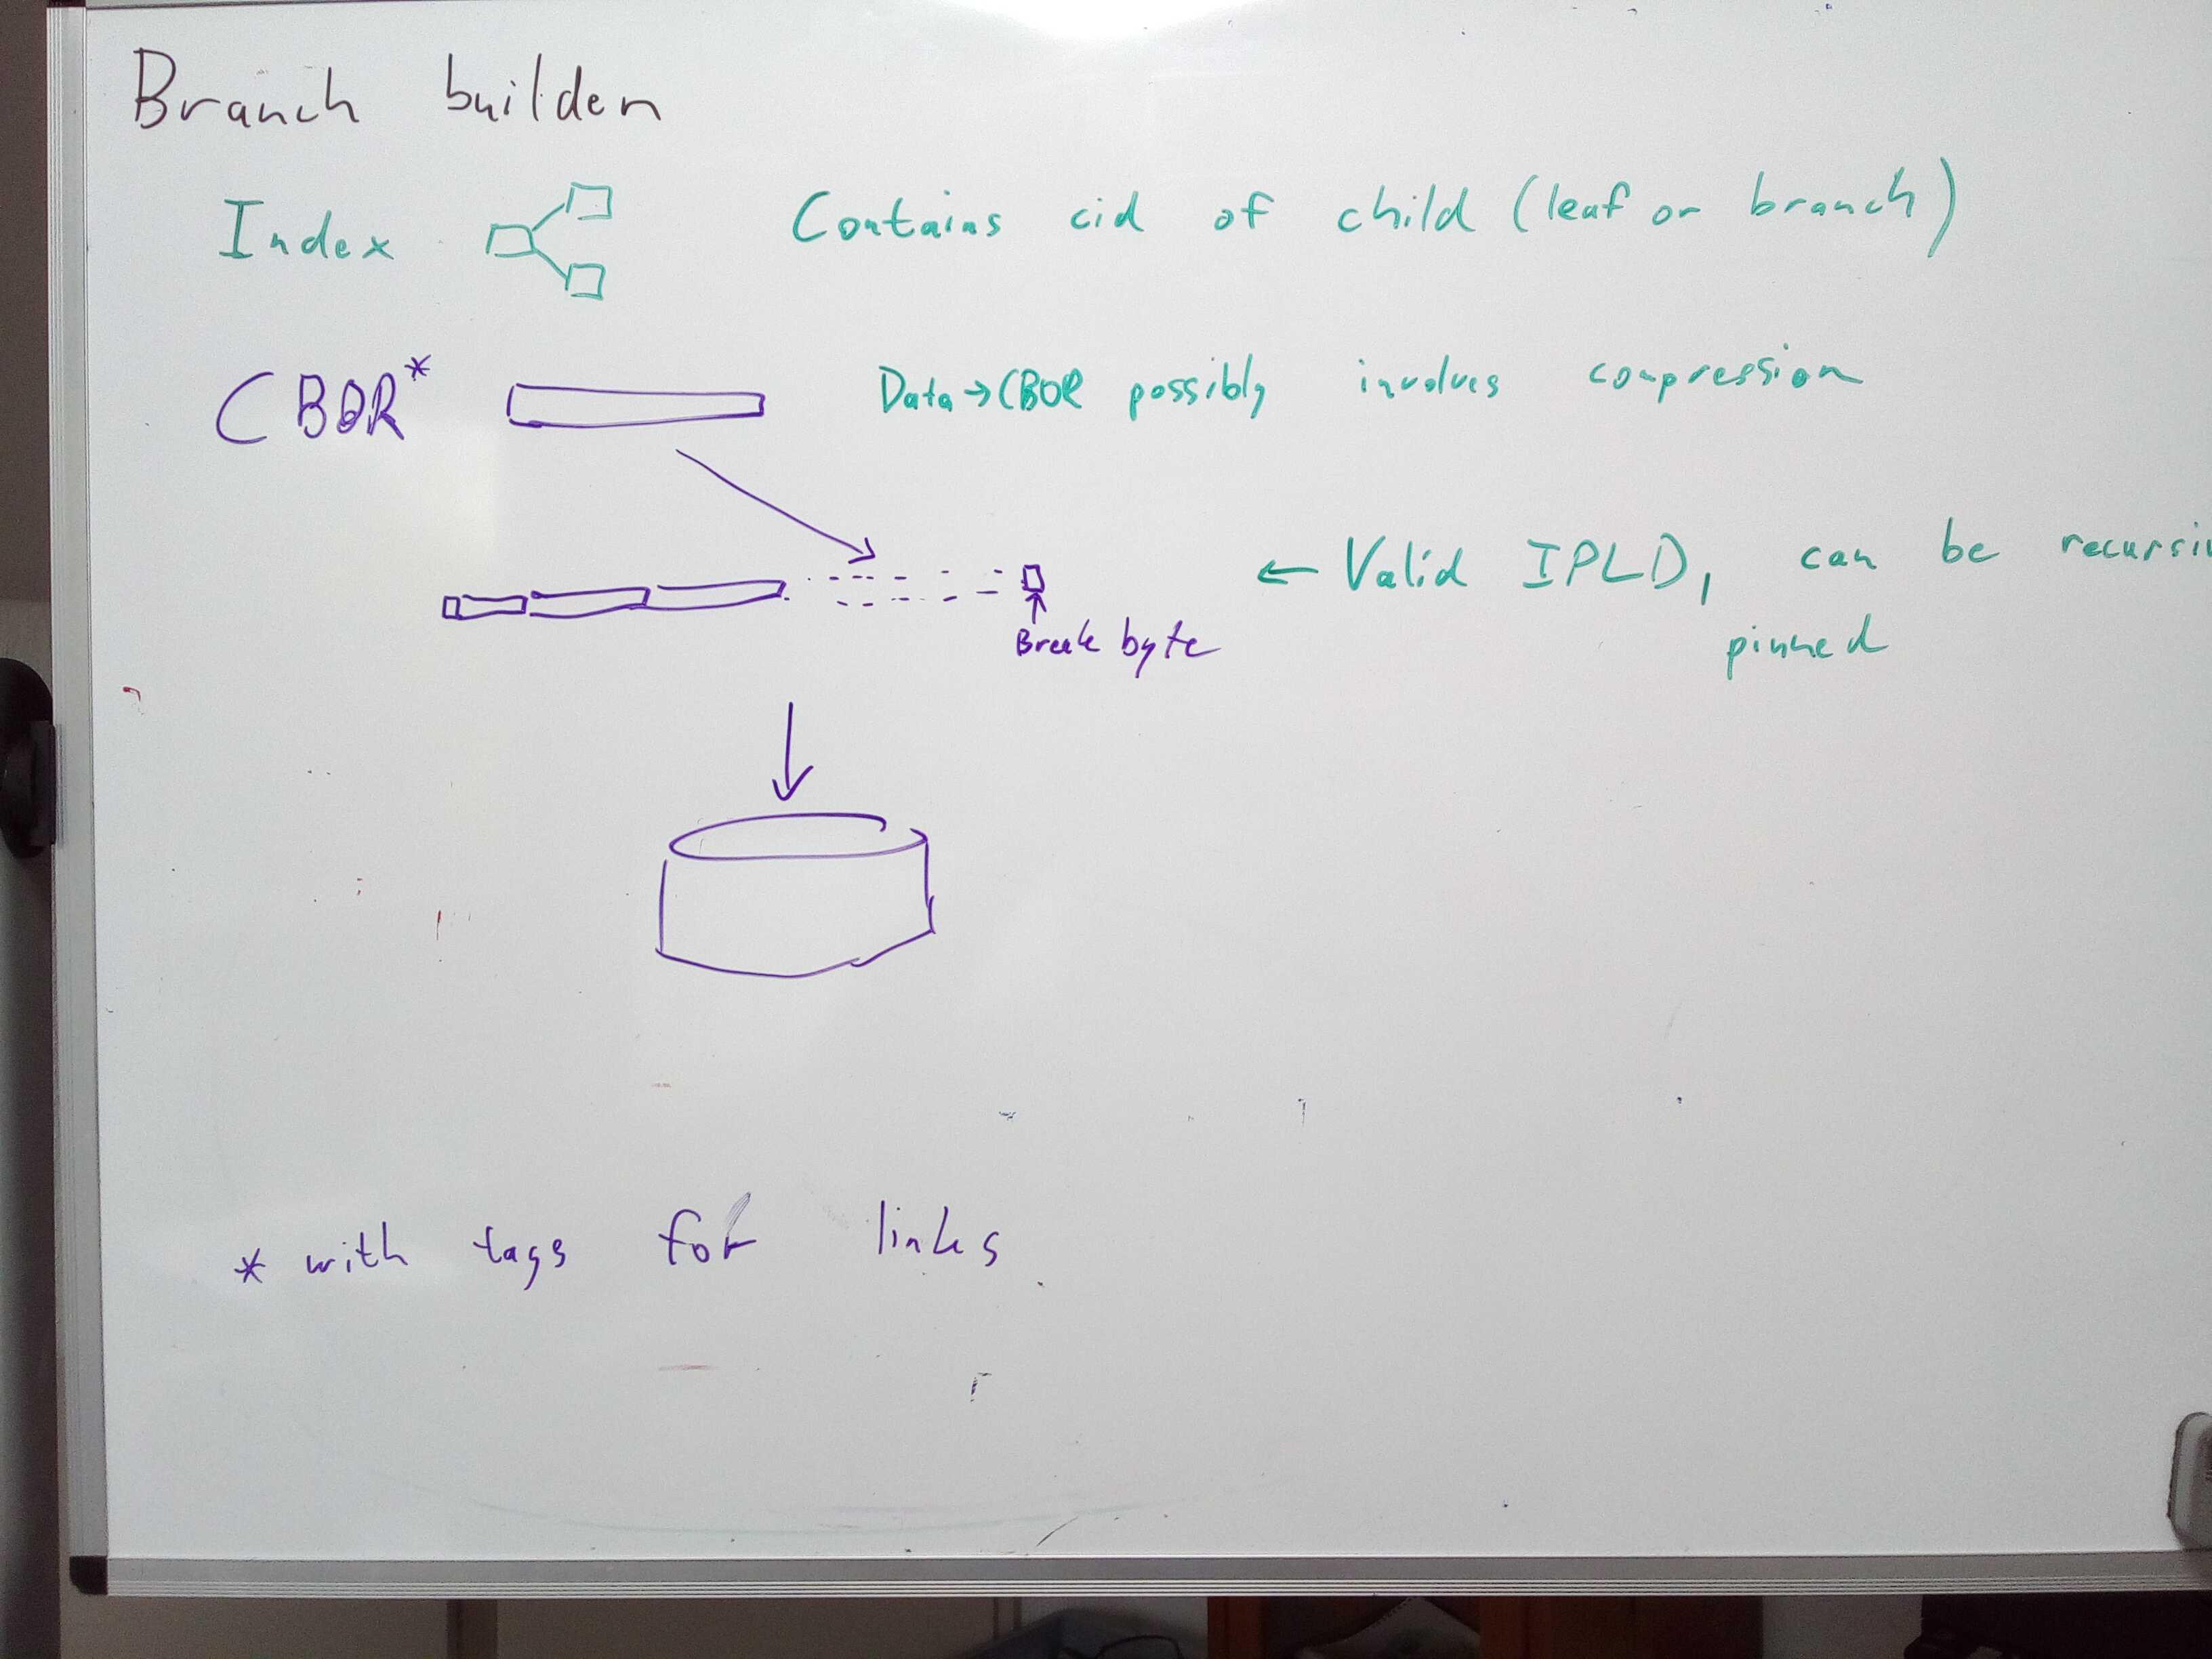 Branch builder
Index Contains cid of child (leaf or branch)
CBOR* Data→CBOR possibly involves compression
← Valid IPLD, can be recursi
pinned
Break byte
* with tags for links